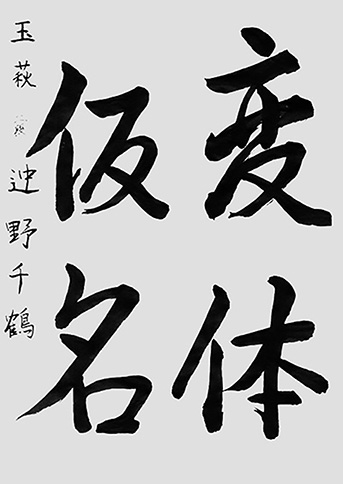 変体
仮名
玉萩 辻野千鶴